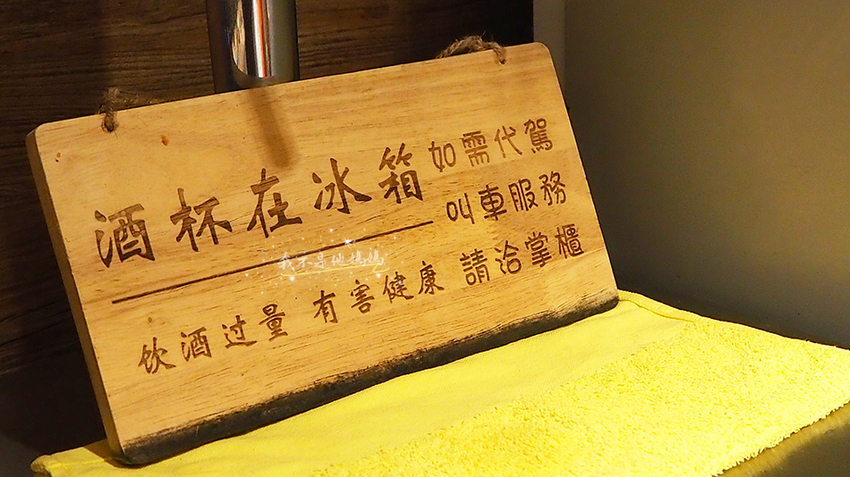 酒杯在冰箱
饮酒过量 有害健康
如需代駕
叫車服務
請洽掌櫃
我不是他媽媽